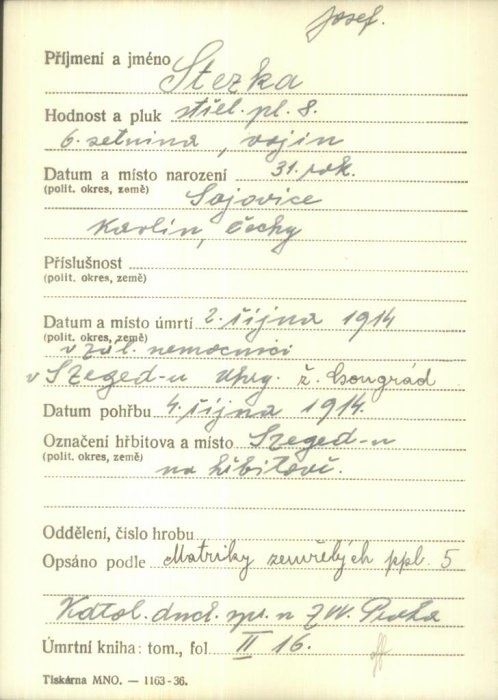 Josef.
Příjmení a jméno Stezka
Hodnost a pluk střel. pl. 8.
6. setnina, vojín
Datum a místo narození 31. rok.
(polit. okres, země) Sojovice
Karlín, Čechy
Příslušnost
(polit. okres, země)
Datum a místo úmrtí 2. října 1914
(polit. okres, země) v zál. nemocnici
v Szeged-u Uhry. ž. Csongrád
Datum pohřbu 4. října 1914.
Označení hřbitova a místo Szeged-u
(polit. okres, země) na hřbitově.
Oddělení, číslo hrobu
Opsáno podle Matriky zemřelých ppl. 5
Katol. duch. spr. n ZVV. Praha
Úmrtní kniha: tom., fol. II 16.
Tiskárna MNO. — 1163-36.